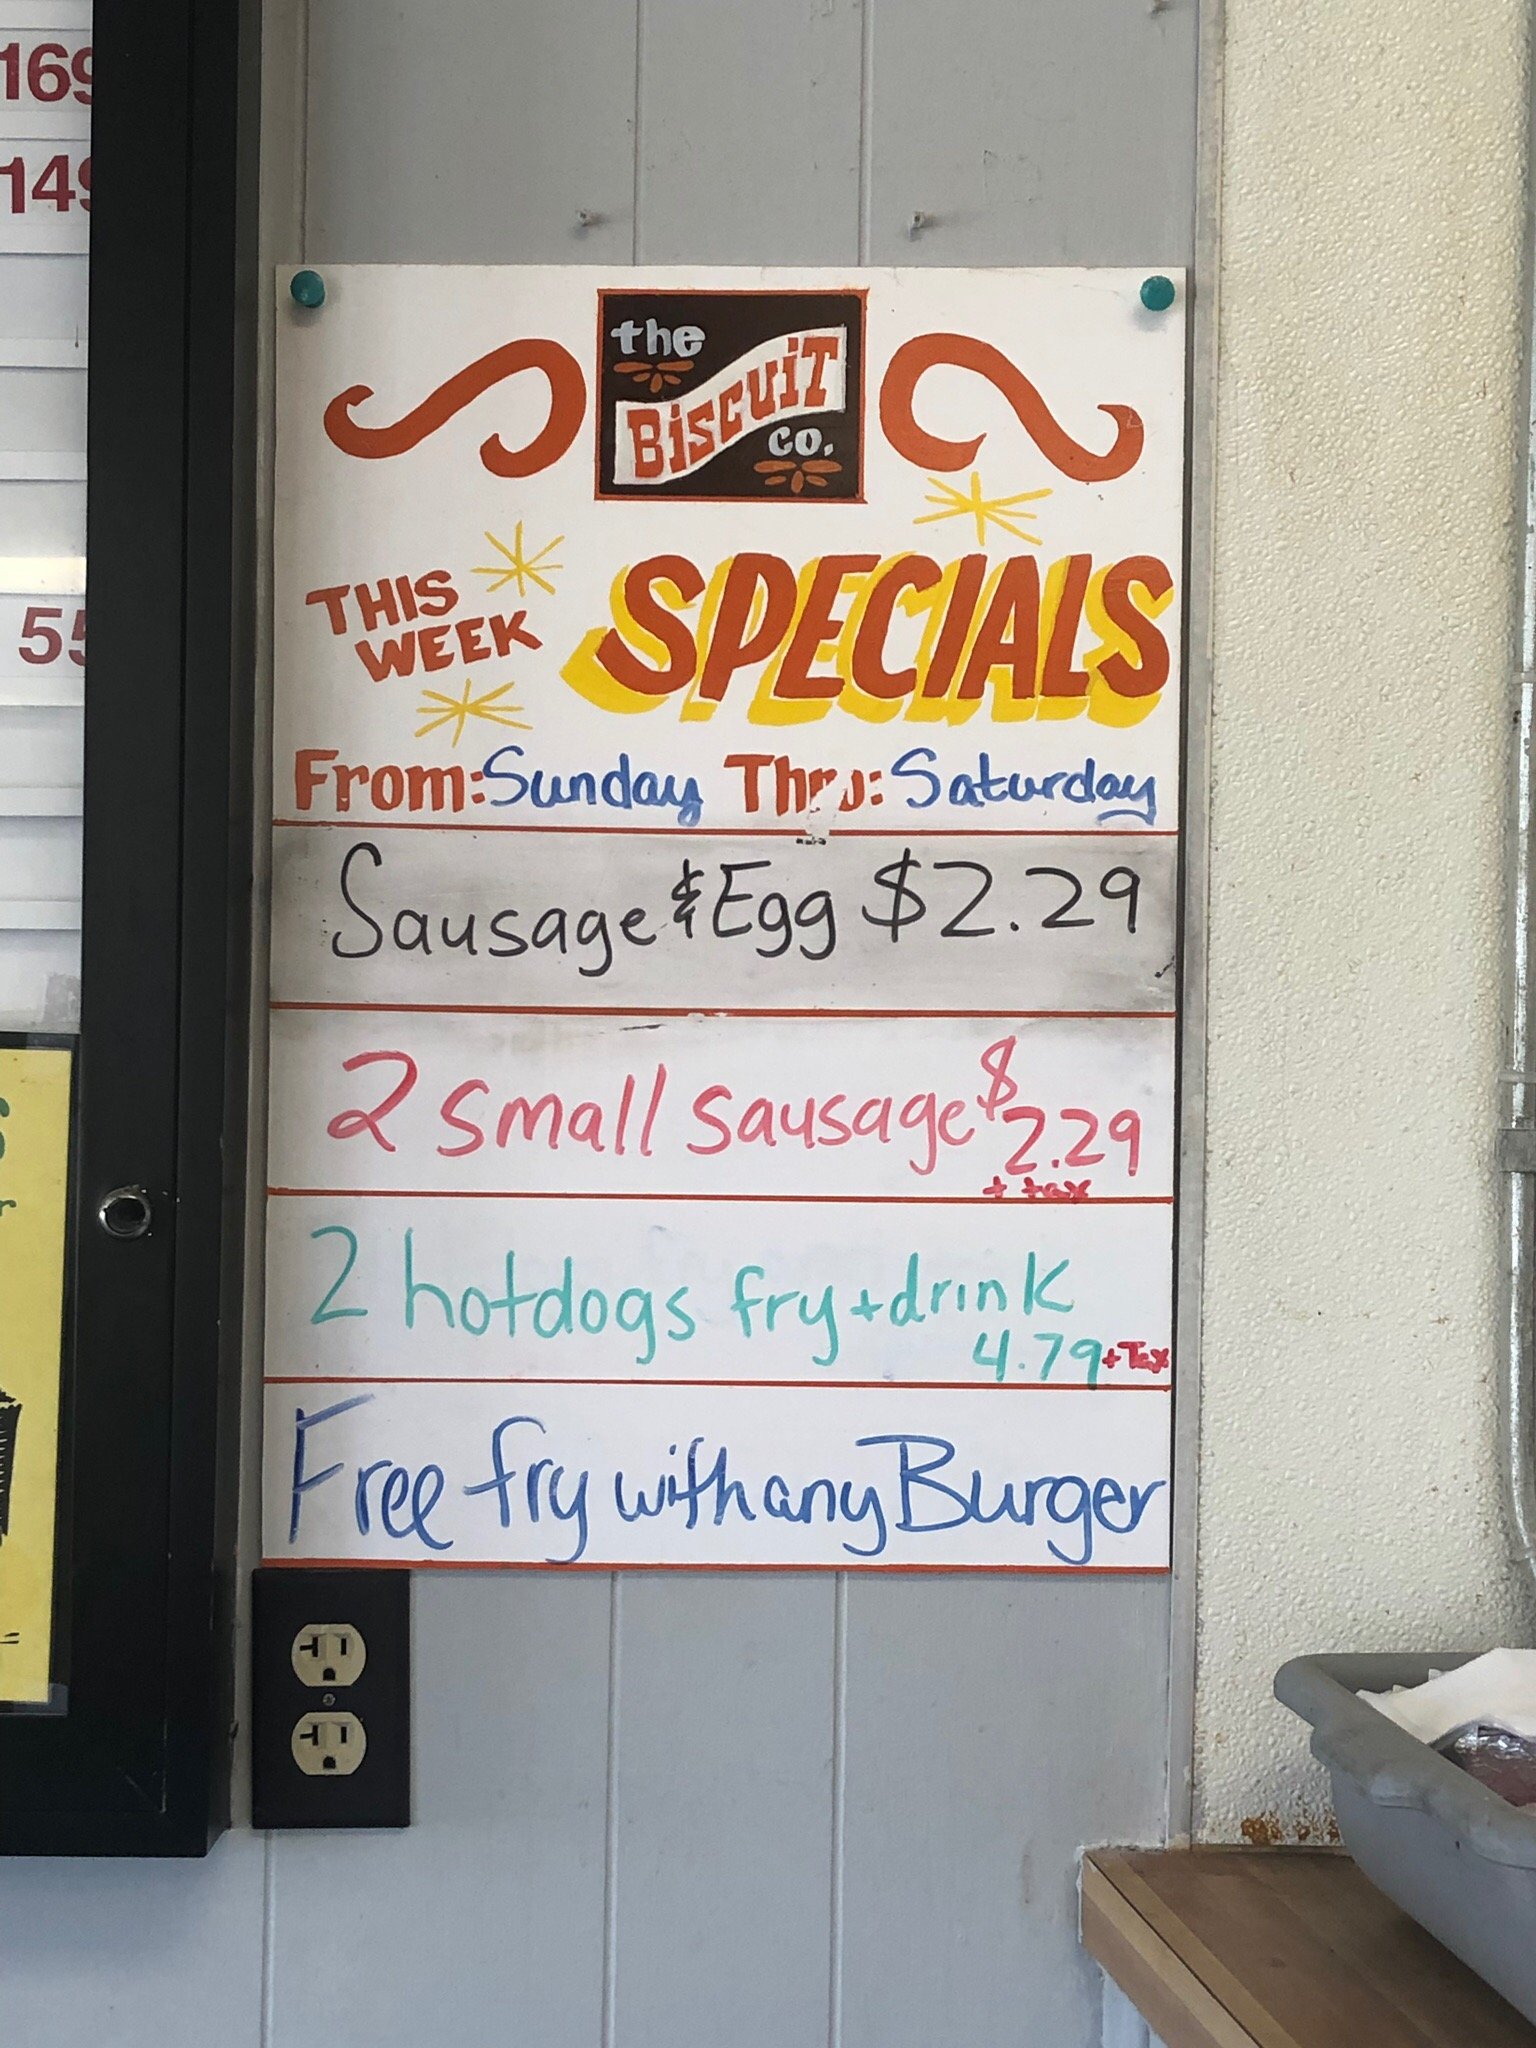 169
149
55
the
BiscuiT
co.
THIS
WEEK
SPECIALS
From: Sunday Thru: Saturday
Sausage & Egg $2.29
2 small sausage $2.29
+ tax
2 hotdogs fry + drink
4.79 + Tax
Free fry with any Burger